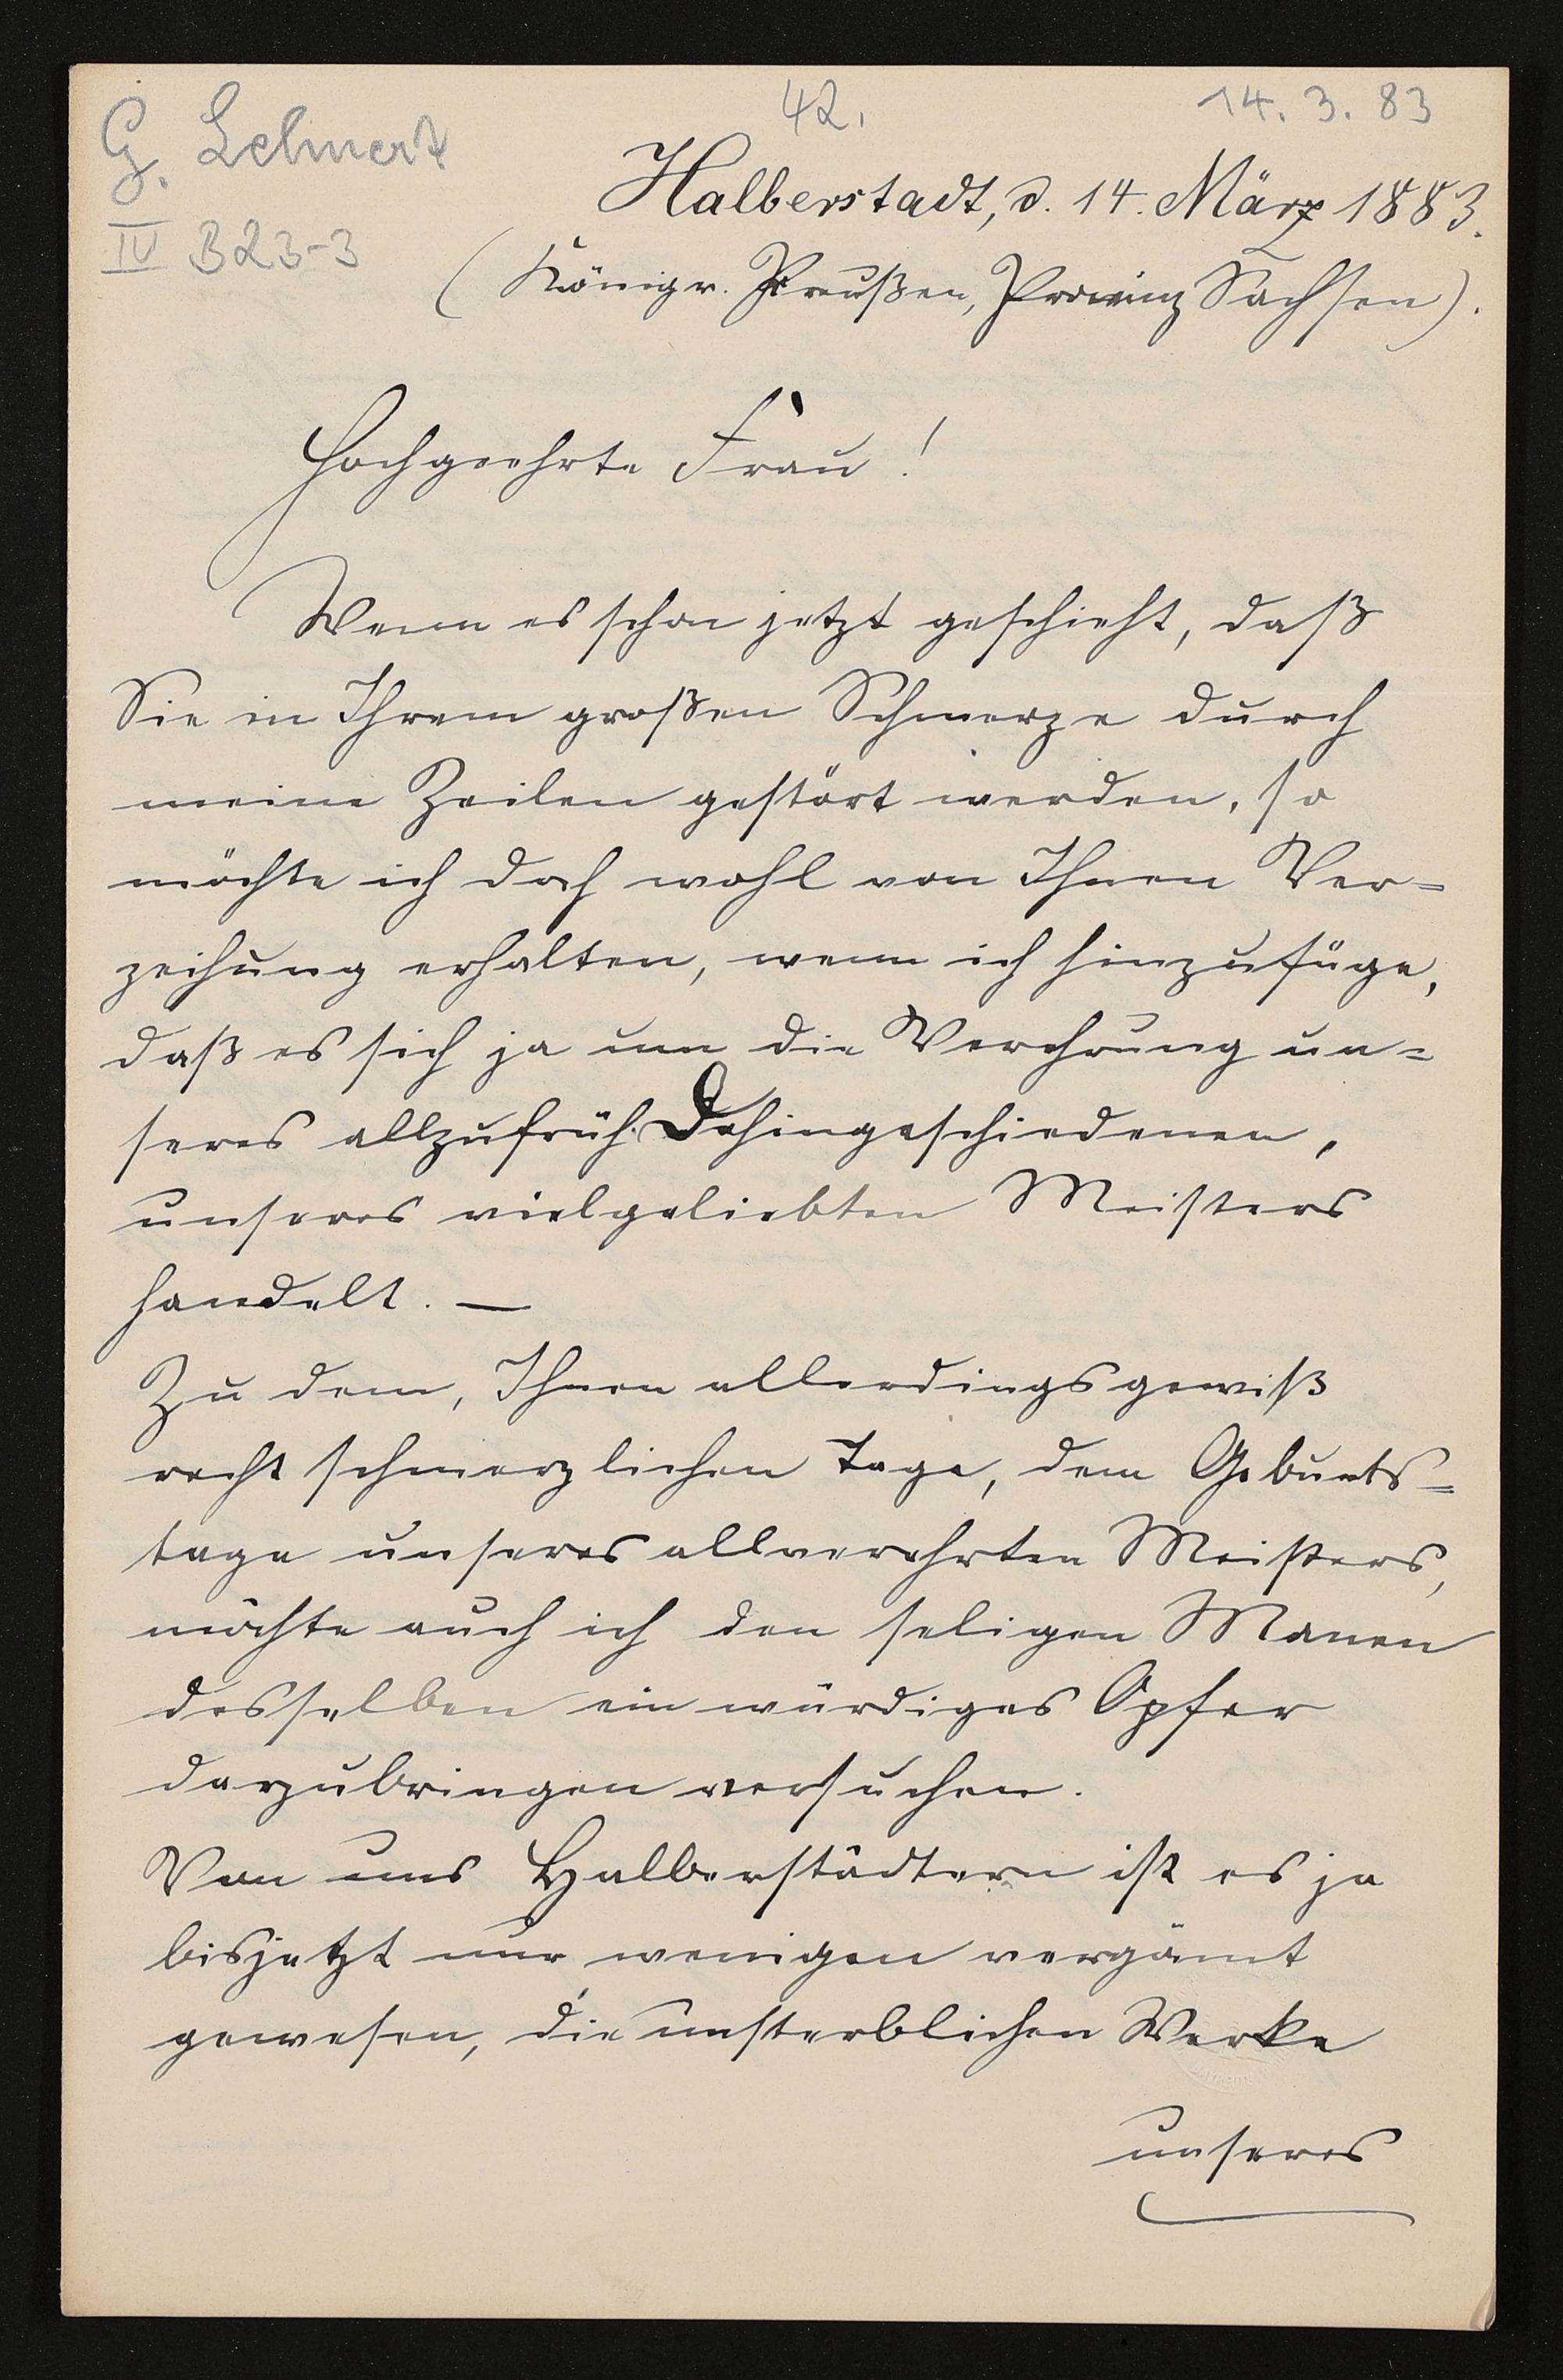 G. Lehnert
42.
14. 3. 83
IV B23-3
Halberstadt, d. 14. März 1883.
(Königr. Preußen, Provinz Sachsen).
Hochgeehrte Frau!
Wenn es schon jetzt geschieht, daß
Sie in Ihrem großen Schmerze durch
meine Zeilen gestört werden, so
möchte ich doch wohl von Ihnen Ver=
zeihung erhalten, wenn ich hinzufüge,
daß es sich ja um die Verehrung un=
seres allzufrüh Dahingeschiedenen,
unseres vielgeliebten Meisters
handelt. —
Zu dem, Ihnen allerdings gewiß
recht schmerzlichen Tage, dem Geburts=
tage unseres allverehrten Meisters,
möchte auch ich den seligen Manen
desselben ein würdiges Opfer
darzubringen versuchen.
Von uns Halberstädtern ist es ja
bisjetzt nur wenigen vergönnt
gewesen, die unsterblichen Werke
unseres